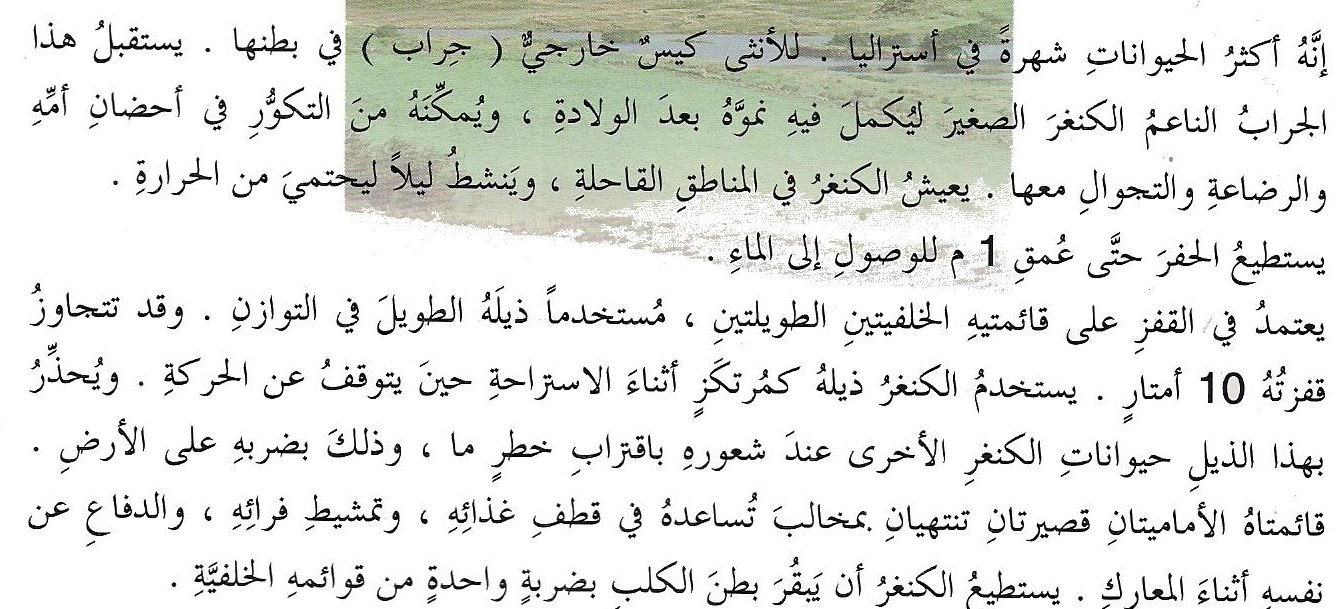 إنَّهُ أكثرُ الحيواناتِ شهرةً في أستراليا . للأنثى كيسٌ خارجيٌّ ( جِراب ) في بطنها . يستقبلُ هذا
الجرابُ الناعمُ الكنغرَ الصغيرَ ليُكملَ فيهِ نموَّهُ بعدَ الولادةِ ، ويُمكِّنَهُ منَ التكوُّرِ في أحضانِ أمِّهِ
والرضاعةِ والتجوالِ معها . يعيشُ الكنغرُ في المناطقِ القاحلةِ ، ويَنشطُ ليلاً ليحتميَ من الحرارةِ .
يستطيعُ الحفرَ حتَّى عُمقِ 1 م للوصولِ إلى الماءِ .
يعتمدُ في القفزِ على قائمتيهِ الخلفيتينِ الطويلتينِ ، مُستخدماً ذيلَهُ الطويلَ في التوازنِ . وقد تتجاوزُ
قفزتُهُ 10 أمتارٍ . يستخدمُ الكنغرُ ذيلهُ كمُرتكَزٍ أثناءَ الاستراحةِ حينَ يتوقفُ عن الحركةِ . ويُحذِّرُ
بهذا الذيلِ حيواناتِ الكنغرِ الأخرى عندَ شعورهِ باقترابِ خطرٍ ما ، وذلكَ بضربهِ على الأرضِ .
قائمتاهُ الأماميتانِ قصيرتانِ تنتهيانِ بمخالبَ تُساعدهُ في قطفِ غذائِهِ ، وتمشيطِ فرائِهِ ، والدفاعِ عن
نفسهِ أثناءَ المعاركِ . يستطيعُ الكنغرُ أن يَبقُرَ بطنَ الكلبِ بضربةٍ واحدةٍ من قوائمهِ الخلفيَّةِ .